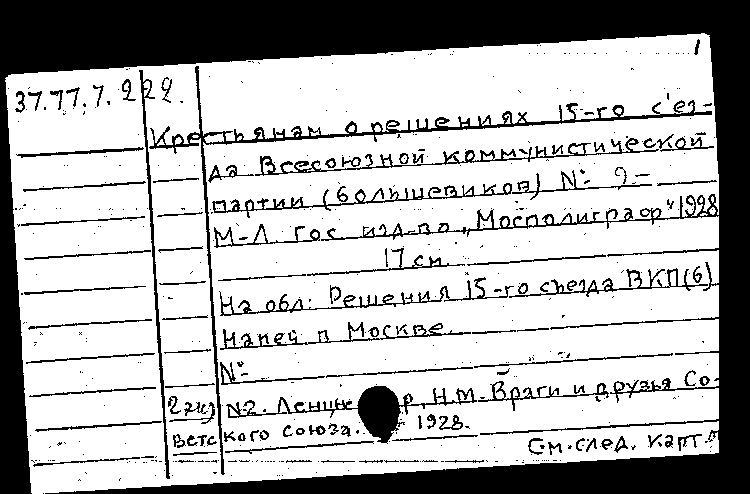 1
37.77.7.222.
Крестьянам о решениях 15-го с'ез-
да Всесоюзной коммунистической
партии (большевиков) №
М-Л. Гос. изд-во „Мосполиграф" 1928
17 см.
На обл: Решения 15-го съезда ВКП(б)
Напеч в Москве.
№
2 экз №2. Ленцне р, Н.М. Враги и друзья Со-
ветс кого союза. 1928.
См. след. карт.